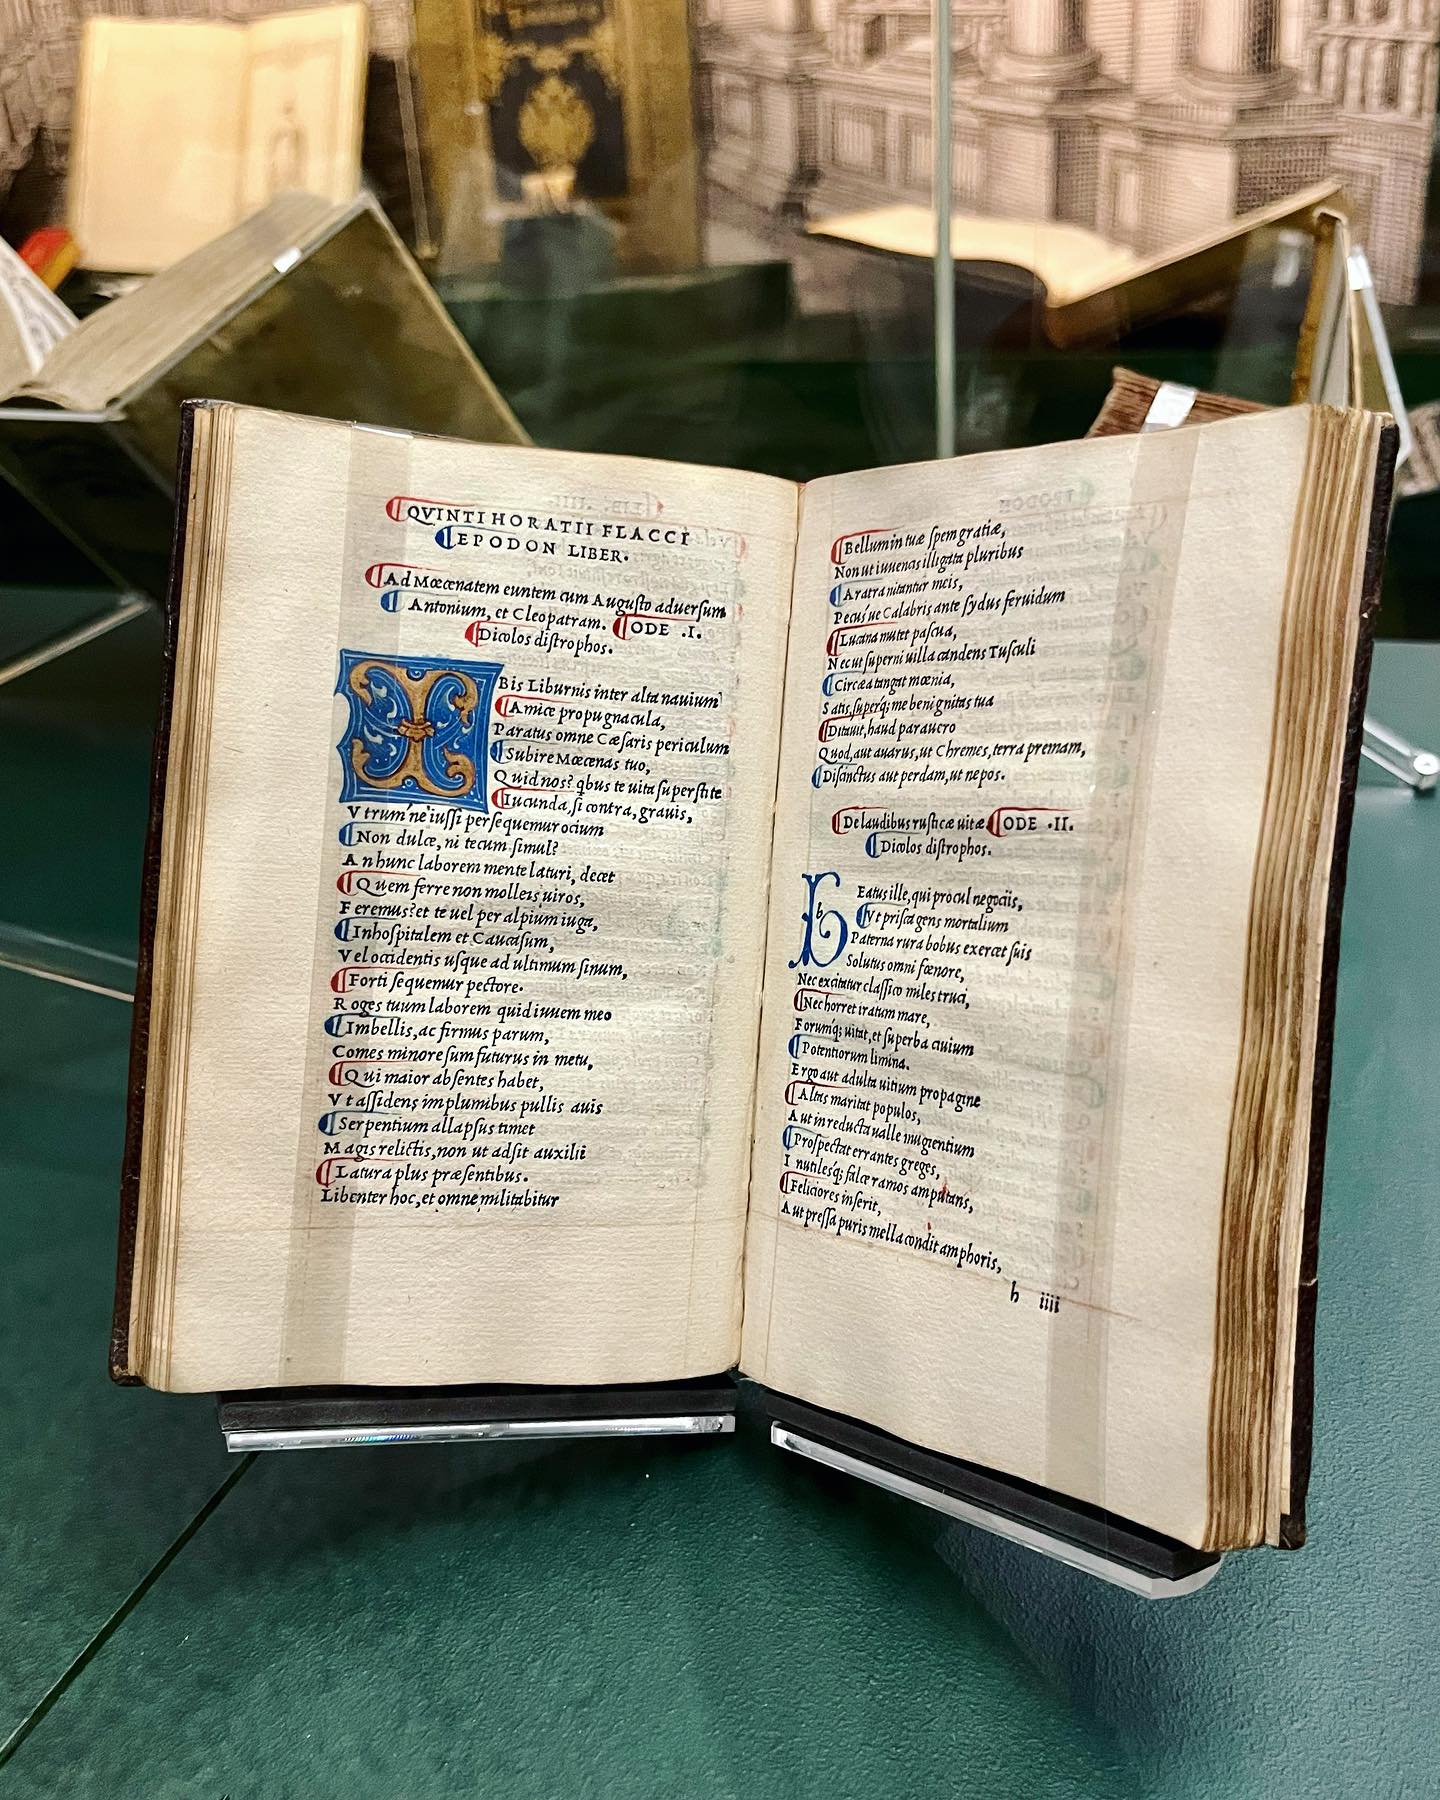 QVINTI HORATII FLACCI
EPODON LIBER.
Ad Mœcenatem euntem cum Augusto aduersum
Antonium, et Cleopatram. ODE .I.
Dicolos distrophos.
IBis Liburnis inter alta nauium
Amice propugnacula,
Paratus omne Cæsaris periculum
Subire Mœcenas tuo,
Quid nos? qbus te uita superstite
Iucunda, si contra, grauis,
Vtrum'ne iussi persequemur ocium
Non dulce, ni tecum simul?
An hunc laborem mente laturi, decet
Quem ferre non molleis uiros,
Feremus? et te uel per alpium iuga,
Inhospitalem et Caucasum,
Vel occidentis usque ad ultimum sinum,
Forti sequemur pectore.
Roges tuum labore m quid iuuem meo
Imbellis, ac firmus parum,
Comes minore sum futurus in metu,
Qui maior absentes habet,
Vt assidens implumibus pullis auis
Serpentium allapsus timet
Magis relictis, non ut adsit auxilii
Latura plus præsentibus.
Libenter hoc, et omne militabitur
Bellum in tuæ spem gratiæ,
Non ut iuuencis illigata pluribus
Aratra nitantur meis,
Pecus'ue Calabris ante sydus feruidum
Lucana mutet pascua,
Nec ut superni uilla candens Tusculi
Circæa tangat mœnia,
Satis, superq; me benignitas tua
Ditauit, haud parauero
Quod, aut auarus, ut Chremes, terra premam,
Discinctus aut perdam, ut nepos.
De laudibus rusticæ uitæ. ODE .II.
Dicolos distrophos.
bEatus ille, qui procul negociis,
Vt prisca gens mortalium
Paterna rura bobus exercet suis
Solutus omni fœnore,
Nec excitatur classico miles truci,
Nec horret iratum mare,
Forumq; uitat, et superba ciuium
Potentiorum limina.
Ergo aut adulta uitium propagine
Altas maritat populos,
Aut in reducta ualle mugientium
Prospectat errantes greges,
Inutilesq; falce ramos amputans,
Feliciores inserit,
Aut pressa puris mella condit amphoris,
h iiii